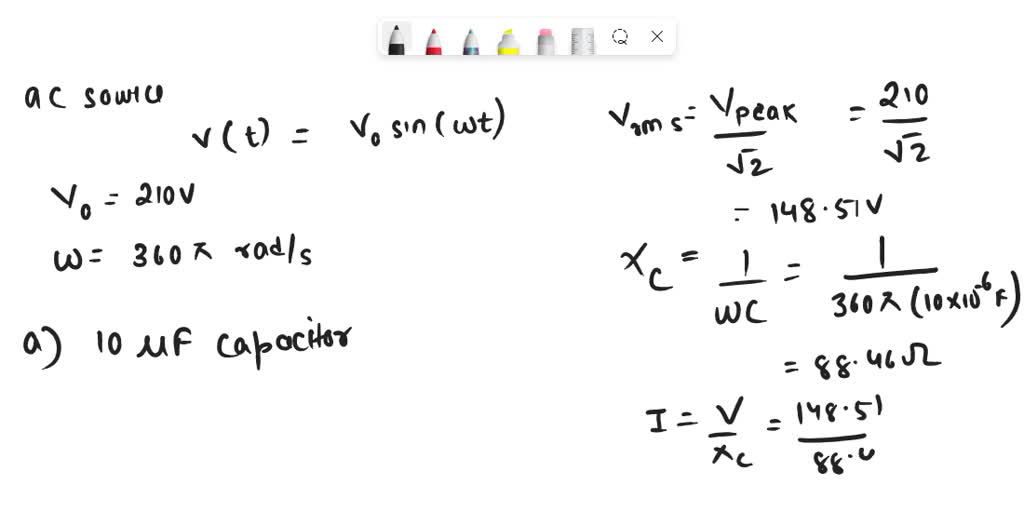 ac source
v(t) = V₀ sin(ωt)
V₀ = 210V
ω = 360π rad/s
a) 10 μF capacitor
Vrms = Vpeak/√2 = 210/√2
= 148.51V
Xc = 1/ωC = 1/360π(10×10⁻⁶F)
= 88.46Ω
I = V/Xc = 148.51/88.4